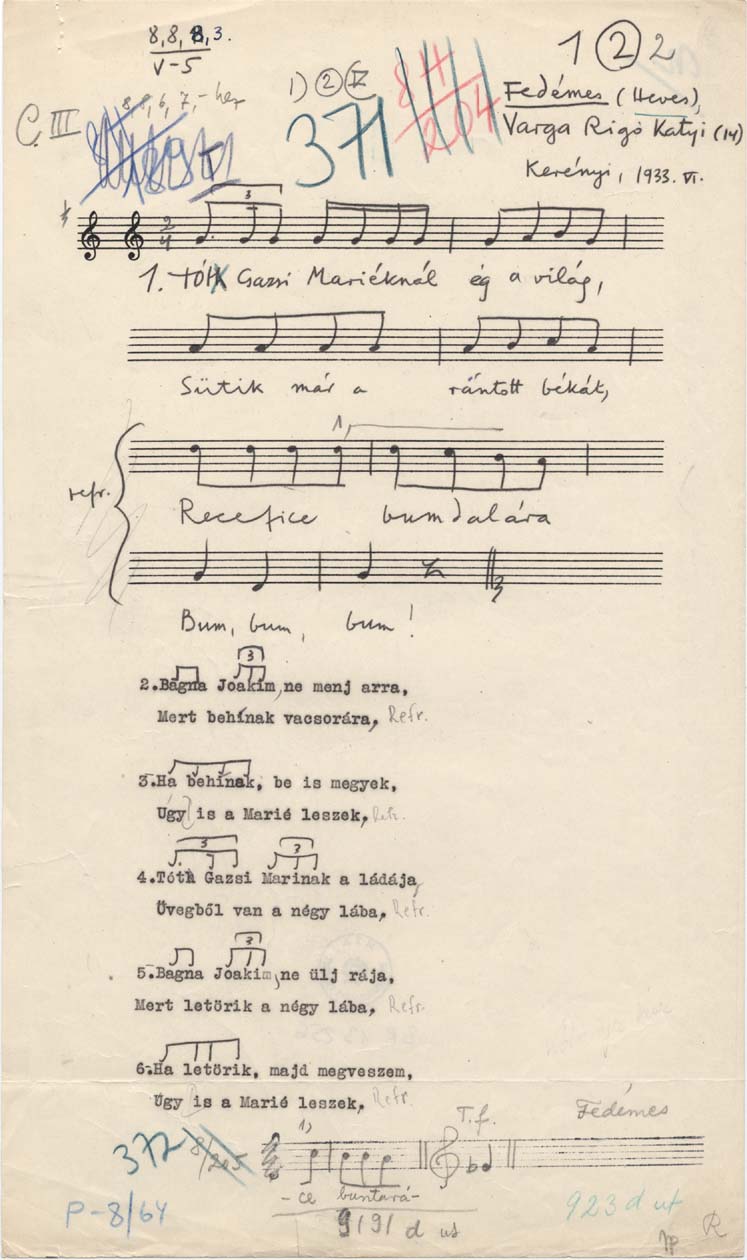 8,8,8,3.
V-5
1 2 2
8 8,6,7,-hez
1) 2 V
C. III
371
84/204
Fedémes (Heves),
Varga Rigó Katyi (14)
Kerényi, 1933. VI.
3
2/4
1. TÓTH Gazsi Mariéknál ég a világ,
Sütik már a rántott békát,
1,
refr.
Recefice bumdalára
Bum, bum, bum!
3
2.Bagna Joakim, ne menj arra,
Mert behínak vacsorára, Refr.
3.Ha behínak, be is megyek,
Úgy is a Marié leszek, Refr.
3 3
4.Tóth Gazsi Marinak a ládája,
Üvegből van a négy lába, Refr.
3
5.Bagna Joakim, ne ülj rája,
Mert letörik a négy lába, Refr.
6.Ha letörik, majd megveszem,
Úgy is a Marié leszek, Refr.
372 8/205
1,
T.f.
Fedémes
-ce buntará-
P-8/64
9191 d ut
923 d ut
R